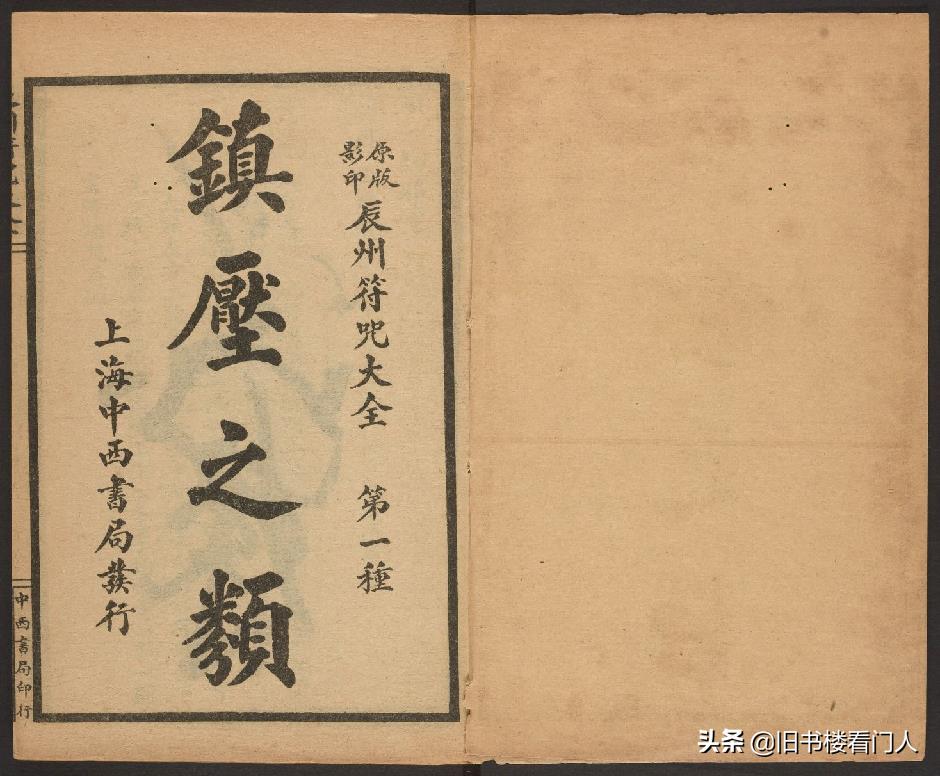 原版
影印
辰州符咒大全 第一種
鎮壓之類
上海中西書局發行
中西書局印行
头条 @旧书楼看门人